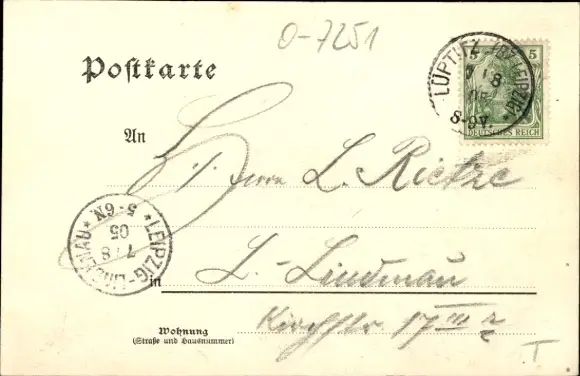 O-7251
Postkarte
5 5
DEUTSCHES REICH
LÜPTITZ
7 8
05
8-9V.
An
Herrn L. Rietze
LEIPZIG-LINDENAU
7 8
05
5-6N
in L.-Lindenau
Wohnung
(Straße und Hausnummer)
Kirchstr 17 III r
T